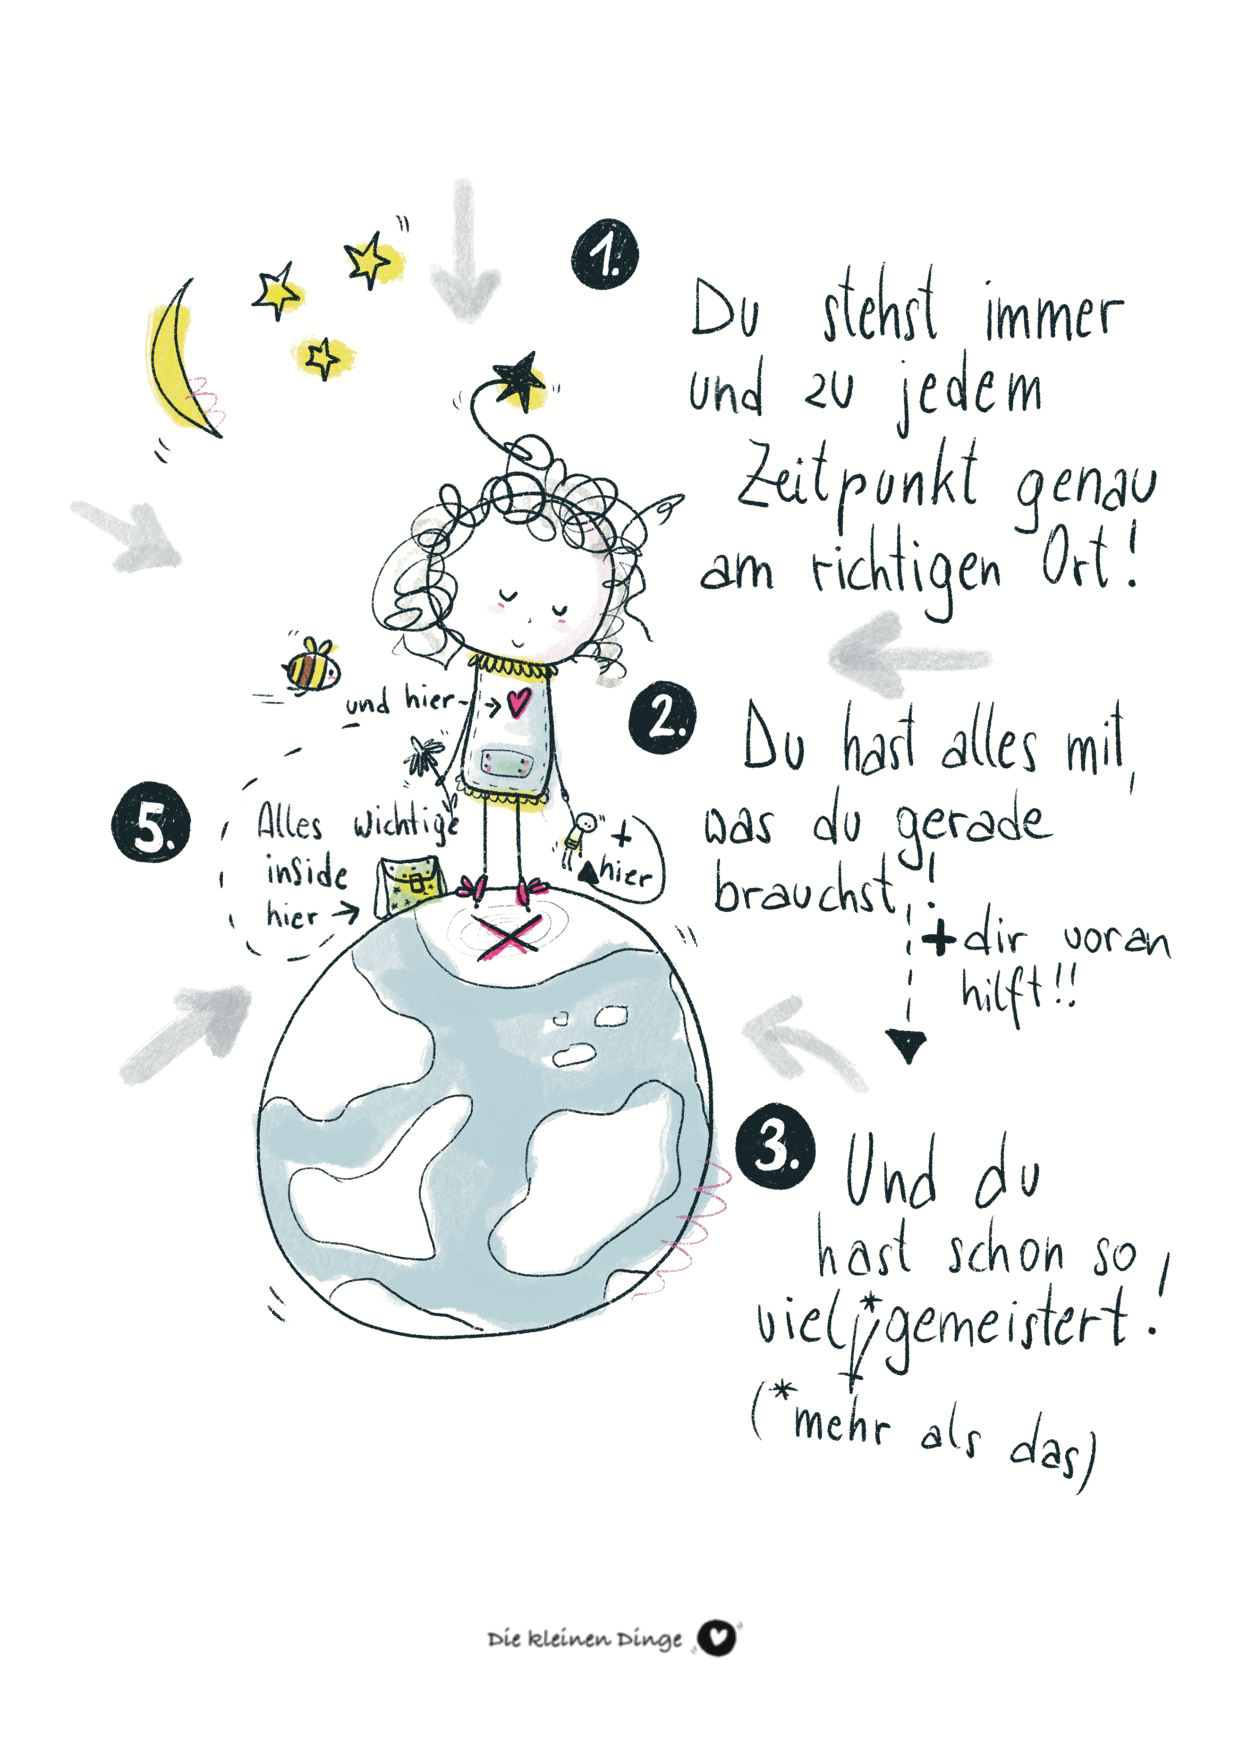 1.
Du stehst immer
und zu jedem
Zeitpunkt genau
am richtigen Ort!
2.
Du hast alles mit,
was du gerade
brauchst,!
+dir voran
hilft!!
3.
Und du
hast schon so
viel* gemeistert!
(*mehr als das)
und hier
5.
Alles wichtige
inside
hier
+
hier
Die kleinen Dinge